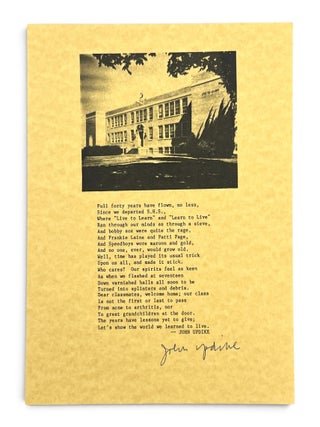 Full forty years have flown, no less,
Since we departed S.H.S.,
Where "Live to Learn" and "Learn to Live"
Ran through our minds as through a sieve,
And bobby sox were quite the rage,
And Frankie Laine and Patti Page,
And Speedboys wore maroon and gold,
And no one, ever, would grow old.
Well, time has played its usual trick
Upon us all, and made it stick.
Who cares? Our spirits feel as keen
As when we flashed at seventeen
Down varnished halls all soon to be
Turned into splinters and debris.
Dear classmates, welcome home; our class
Is not the first or last to pass
From acne to arthritis, nor
To greet grandchildren at the door.
The years have lessons yet to give;
Let's show the world we learned to live.
-- JOHN UPDIKE
John Updike